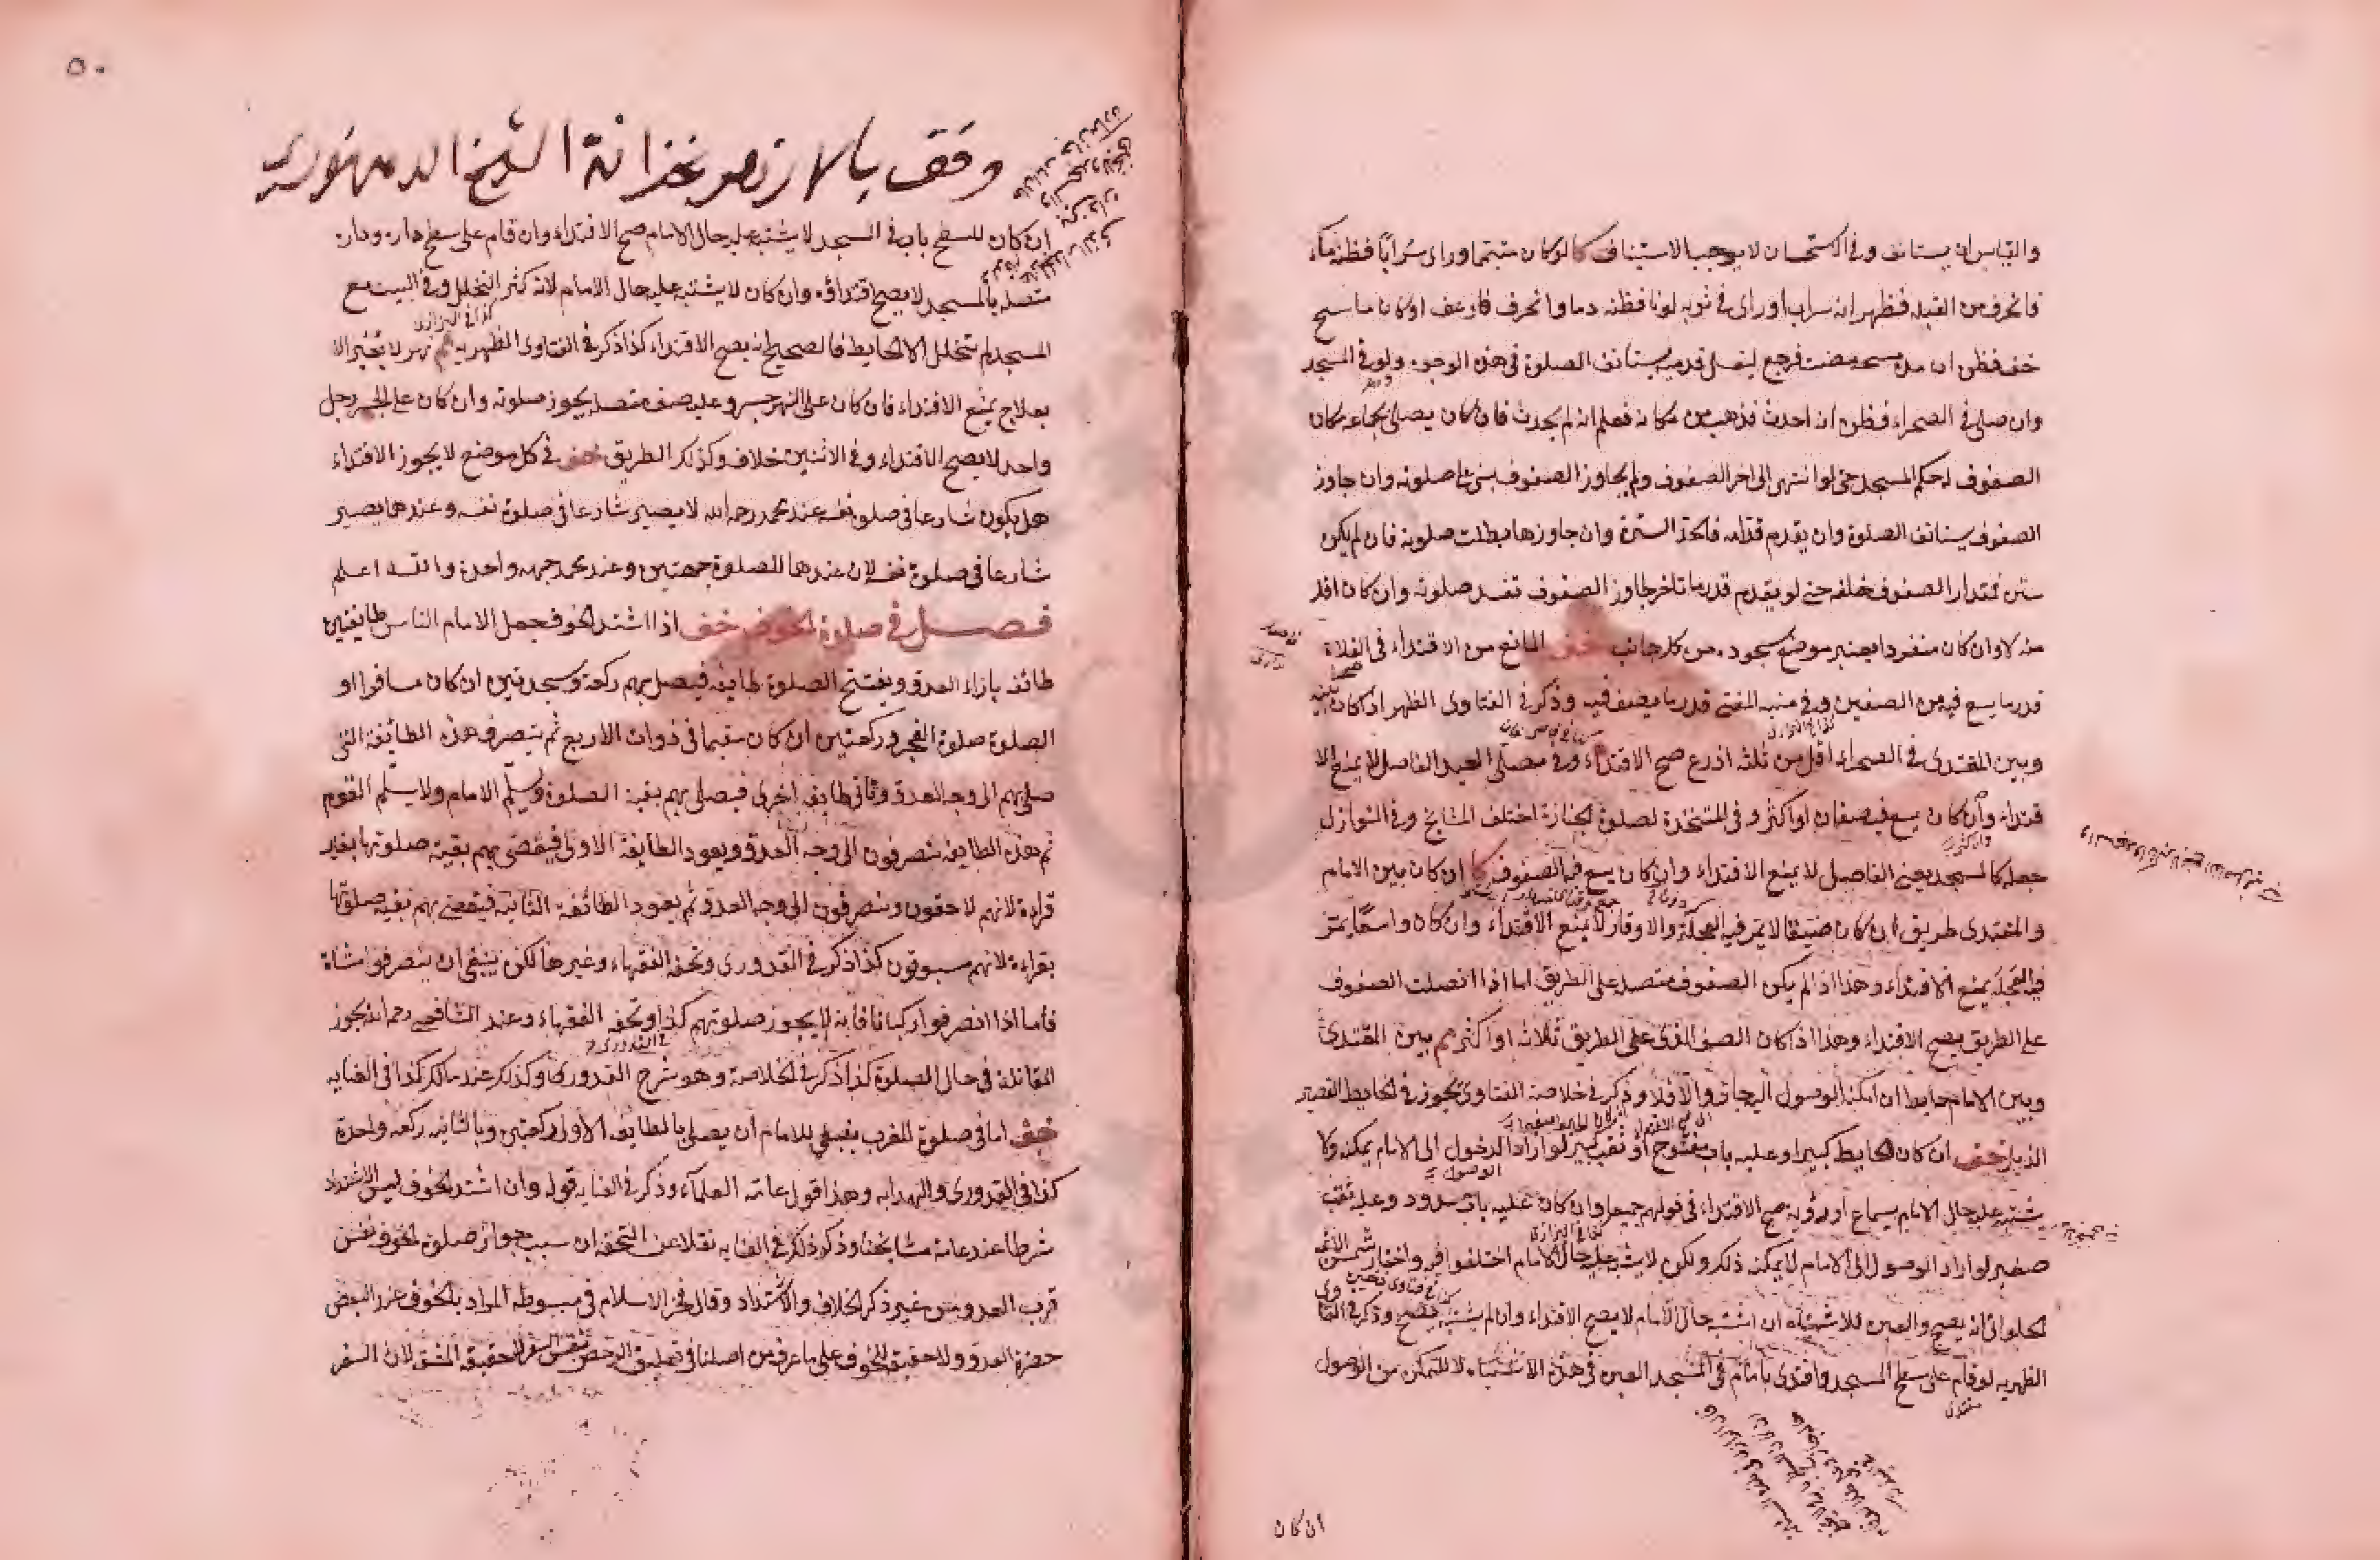 والقياس ان يستانف وفي الاستحسان لا يوجب الاستيناف كما لو كان متيمما وراى سرابا فظنه ماء
فانحرف من القبلة فظهر انه سراب او راى في ثوبه لونا فظنه دما وانحرف فارعف او كان ماسح
خف فظن ان مدة مسحه مضت فرجع ليغسل قدميه يستانف الصلوة في هذه الوجوه ولو في المسجد
وان صلى في الصحراء فظن انه احدث فذهب من مكانه فعلم انه لم يحدث فان كان يصلى بجماعة مكان
الصفوف له حكم المسجد حتى لو انتهى الى اخر الصفوف ولم يجاوز الصفوف بنى على صلوته وان جاوز
الصفوف يستانف الصلوة وان يقدم قدامه فالحد السترة وان جاوزها بطلت صلوته فان لم يكن
سترة فمقدار الصفوف خلفه حتى لو تقدم قدر ما تاخر جاوز الصفوف تفسد صلوته وان كان اقل
منه لا وان كان منفردا يعتبر موضع سجوده من كل جانب المانع من الاقتداء في الفلاة
قدر ما يسع فيه من الصفين وفي منية المفتي قدر ما يصف فيه وذكر في الفتاوى الظهر اذا كان بينه
وبين المقتدى في الصحراء اقل من ثلثة اذرع صح الاقتداء وفي مصلى العيد الفاصل لا يمنع الا
قتداء وان كان يسع فيه صفان او اكثر وفي المتخذة لصلوة الجنازة اختلف المشايخ وفي النوازل
جعله كالمسجد يعني الفاصل لا يمنع الاقتداء وان كان يسع فيه الصفوف كا ان كان بين الامام
والمقتدى طريق ان كان ضيقا لا يمر فيه العجلة والاوقار لا يمنع الاقتداء وان كان واسعا يمر
فيه العجلة يمنع الاقتداء وهذا اذا لم يكن الصفوف متصلة على الطريق اما اذا اتصلت الصفوف
على الطريق يصح الاقتداء وهذا اذا كان الصف الذى على الطريق ثلاثة او اكثر بين المقتدى
وبين الامام حايط ان امكنه الوصول اليه جاز والا فلا وذكر في خلاصة الفتاوى يجوز في الحايط القصير
ان كان الحايط كبيرا وعليه باب مفتوح او نقب كبير لو اراد الدخول الى الامام يمكنه ولا
يشتبه عليه حال الامام بسماع او رؤية صح الاقتداء في قولهم جميعا وان كان عليه باب مسدود وعليه نقب
صغير لو اراد الوصول الى الامام لا يمكنه ذلك ولكن لا يشتبه عليه حال الامام اختلفوا فيه واختار شمس الائمة
الحلوانى انه يصح والعبرة للاشتباه ان اشتبه حال الامام لا يصح الاقتداء وان لم يشتبه يصح وذكر في الفتا
وى
الظهرية لو قام على سطح المسجد واقتدى بامام في المسجد العبرة في هذه الاشتباه لا للتمكن من الوصول
ان كان
٥٠
وقف بالازهر بخزانة الشيخ الدمنهورى
ان كان للسطح باب في المسجد لا يشتبه عليه حال الامام صح الاقتداء وان قام على سطح داره وداره
متصلة بالمسجد لا يصح اقتداؤه وان كان لا يشتبه عليه حال الامام لانه كثر التخلل وفي البيت مع
المسجد لم يتخلل الا الحايط فالصحيح انه يصح الاقتداء كذا ذكر في الفتاوى الظهرية نهر لا يعبر الا
بعلاج يمنع الاقتداء فان كان على النهر جسر وعليه صف متصل يجوز صلوته وان كان على الجسر رجل
واحد لا يصح الاقتداء وفي الاثنين خلاف وكذلك الطريق في كل موضع لا يجوز الاقتداء
هل يكون شارعا في صلوة نفسه عند محمد رحمه الله لا يصير شارعا في صلوة نفسه وعندهما يصير
شارعا في صلوة نفسه لان عندهما للصلوة جهتين وعند محمد جهة واحدة والله اعلم
فصل في صلوة الخوف اذا اشتد الخوف جعل الامام الناس طايفتين
طائفة بازاء العدو ويفتتح الصلوة بطايفة فيصلى بهم ركعة وسجدتين ان كان مسافرا او
الصلوة صلوة الفجر وركعتين ان كان مقيما في ذوات الاربع ثم ينصرف هذه الطائفة التي
صلى بهم الى وجه العدو وتاتى طايفة اخرى فيصلى بهم بقية الصلوة ويسلم الامام ولا يسلم القوم
ثم هذه الطايفة ينصرفون الى وجه العدو ويعود الطايفة الاولى فيقضى بهم بقية صلوتها بغير
قراءة لانهم لاحقون وينصرفون الى وجه العدو ثم يعود الطائفة الثانية فيقضى بهم بقية صلوتها
بقراءة لانهم مسبوقون كذا ذكر في القدورى وتحفة الفقهاء وغيرها لكن ينبغى ان ينصرفوا مشاة
فاما اذا انصرفوا ركبانا فانه لا يجوز صلوتهم كذا وتحفة الفقهاء وعند الشافعى رحمه الله يجوز
المقاتلة في حال الصلوة كذا ذكر في الخلاصة وهو شرح القدورى وكذلك عند مالك كذا في الغاية
اما في صلوة المغرب ينبغى للامام ان يصلى بالطايفة الاولى ركعتين وبالثانية ركعة واحدة
كذا في القدورى والهداية وهذا قول عامة العلماء وذكر في الغاية قوله وان اشتد الخوف ليس الاشتداد
شرطا عند عامة مشايخنا وذكر في الغاية نقلا عن التحفة ان سبب جواز صلوة الخوف نفس
قرب العدو من غير ذكر الخلاف والاشتداد وقال فخر الاسلام في مبسوطه المراد بالخوف عند البعض
حضرة العدو ولا حقيقة الخوف على ما عرف من اصلنا في تعليق الرخص بنفس السفر لا حقيقة المشقة لان السفر